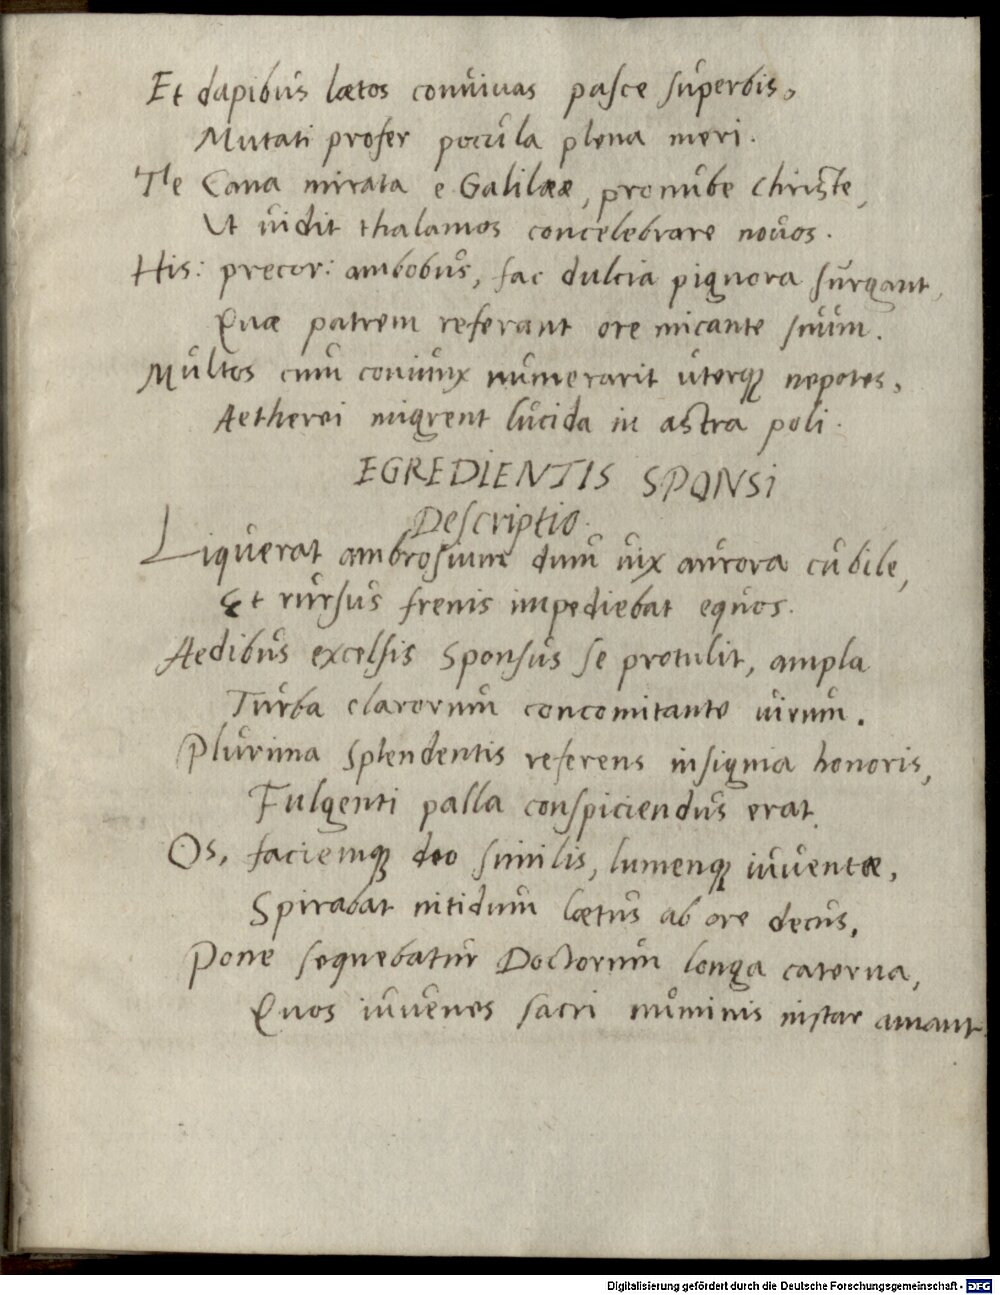 Et dapibus lætos conuiuas pasce superbis,
Mutati profer pocula plena meri.
Te Cana mirata e Galilææ, pronube Christe,
Ut uidit thalamos concelebrare nouos.
His: precor: ambobus, fac dulcia pignora surgant,
Quæ patrem referant ore micante suum.
Multos cum coniunx numerarit uterque nepotes,
Aetherei migrent lucida in astra poli.
EGREDIENTIS SPONSI
Descriptio.
Liquerat ambrosium dum uix aurora cubile,
Et rursus frenis impediebat equos.
Aedibus excelsis Sponsus se protulit, ampla
Turba clarorum concomitante uirum.
Plurima splendentis referens insignia honoris,
Fulgenti palla conspiciendus erat.
Os, faciemque deo similis, lumenque iuuentæ,
Spirabat nitidum lætus ab ore decus.
Pone sequebatur Doctorum longa caterua,
Quos iuuenes sacri numinis instar amant.
Digitalisierung gefördert durch die Deutsche Forschungsgemeinschaft - DFG